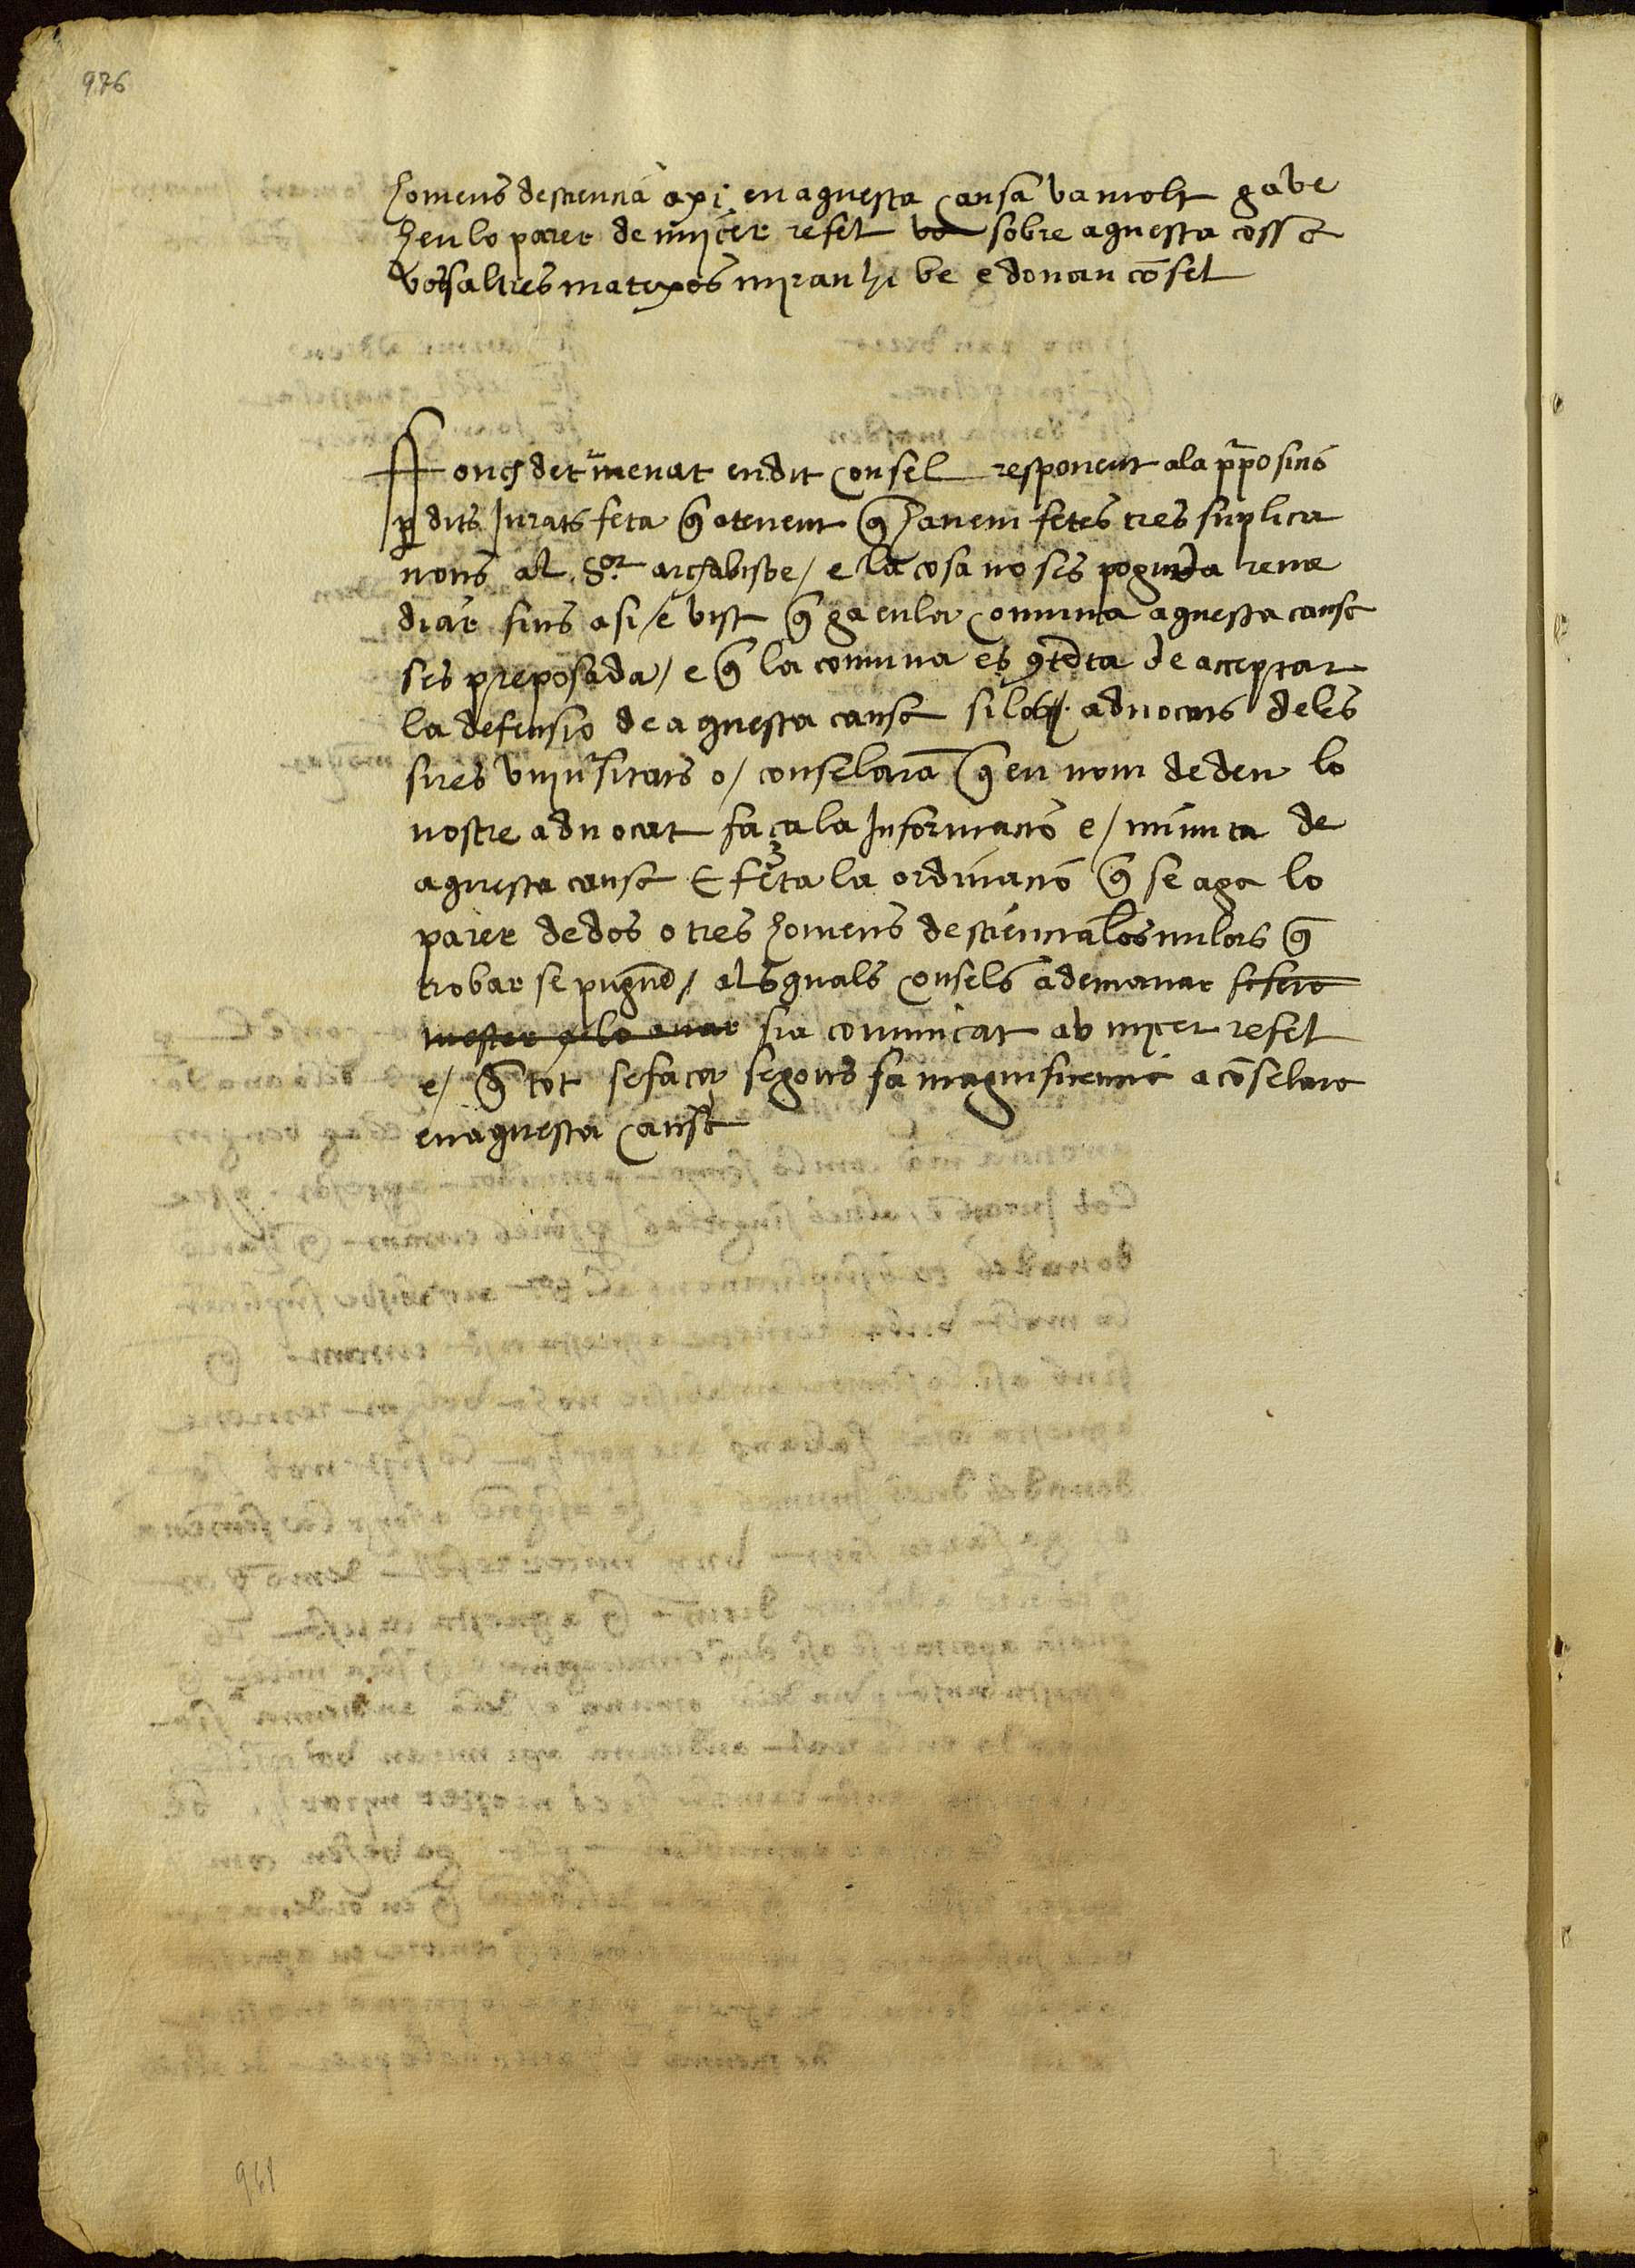 976
homens de sciencia axi en aquesta causa va molt ga ve
heu lo parer de miçer refel va sobre aquesta cossa
vosaltres matexos mirau hi be e donau cõsel
Fonch detrmenat en dit consel responent a la pposicio
p dits Jurats feta q̃ atenent q̃ hauem fetes tres suplica
cions al Sor archabisbe / e la cosa no ses poguda reme
diar fins asi / e vist q̃ ga en la comuna aquesta causa
ses preposada / e q̃ la comuna es 9tẽta de acceptar
la defensio de aquesta causa si los aduocats de les
sires uniursitats o / conselarã q̃ en nom de deu lo
nostre aduocat faça la Informacio e / minuta de
aquesta causa E feta la ordinacio q̃ se age lo
parer de dos o tres homens de sciencia los milors q̃
trobar se pugue / als quals consels a demanar si sera
mester p lo anar sia comunicat ab miçer refel
e / q̃ tot se faça segons sa magnificencia acõselara
en aquesta causa
961